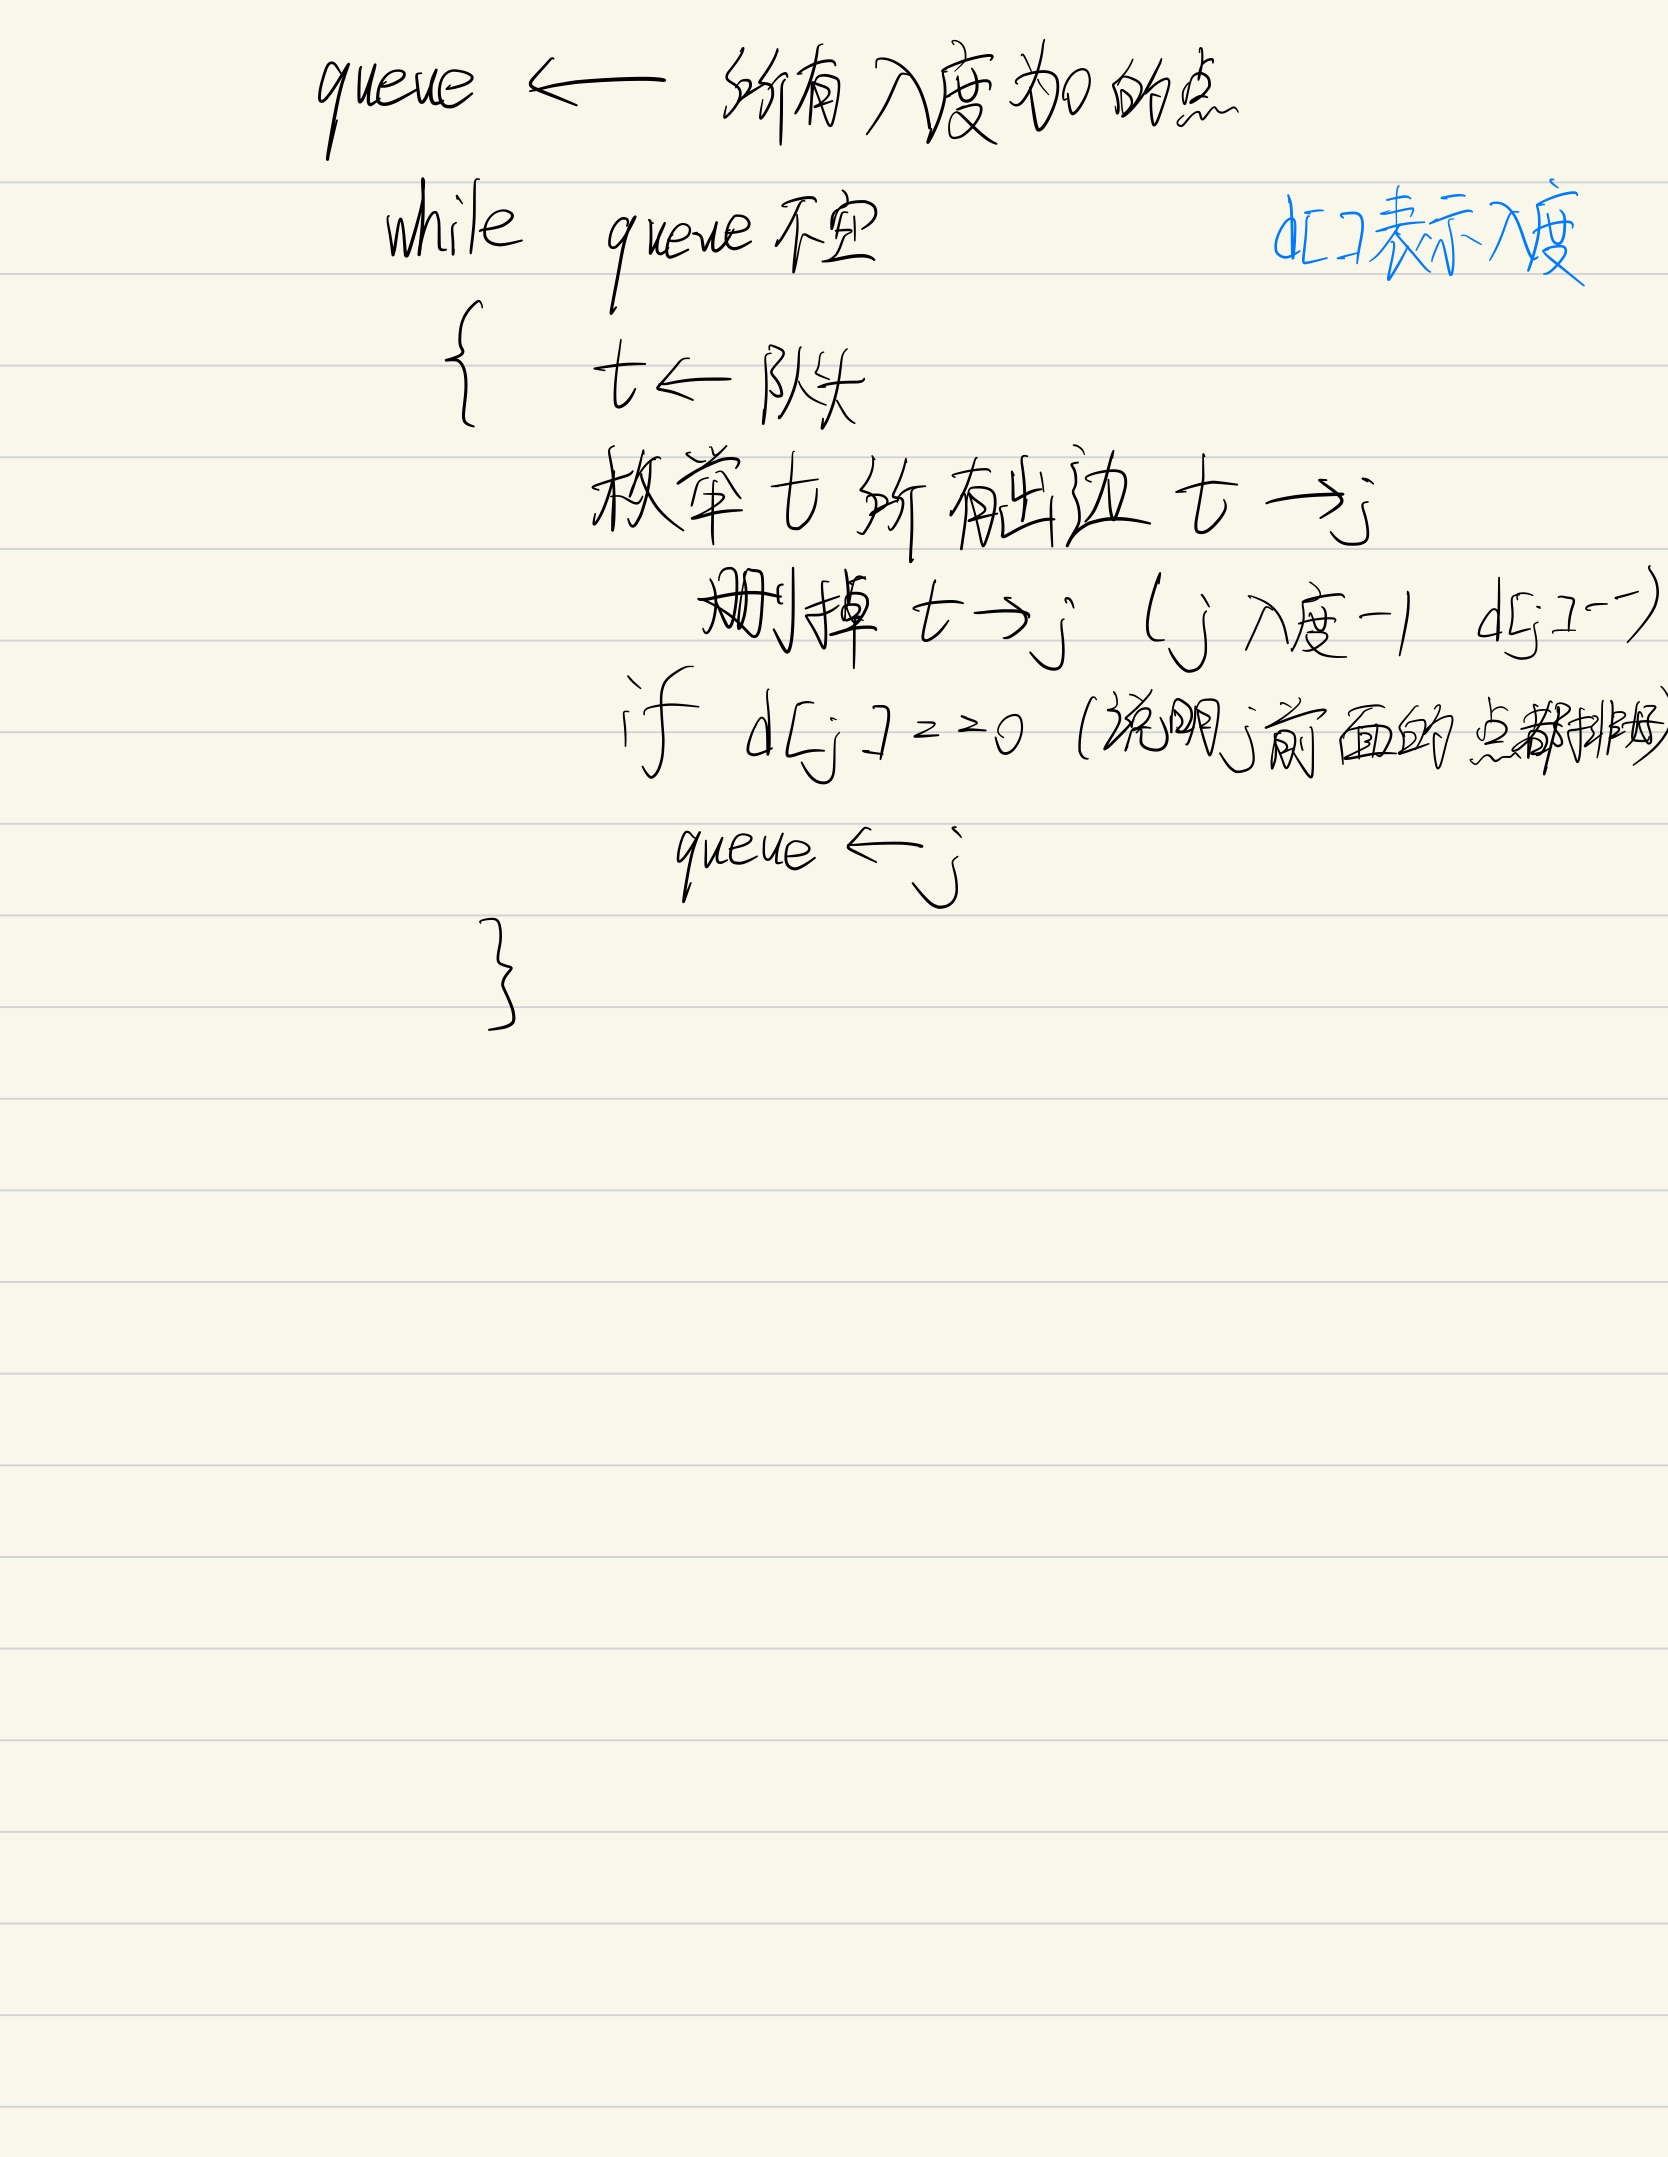 queue ← 所有入度为0的点
while queue 不空
d[]表示入度
{ t ← 队头
枚举 t 所有出边 t → j
删掉 t → j (j 入度-1 d[j]--)
if d[j]==0 (说明j前面的点都排好)
queue ← j
}